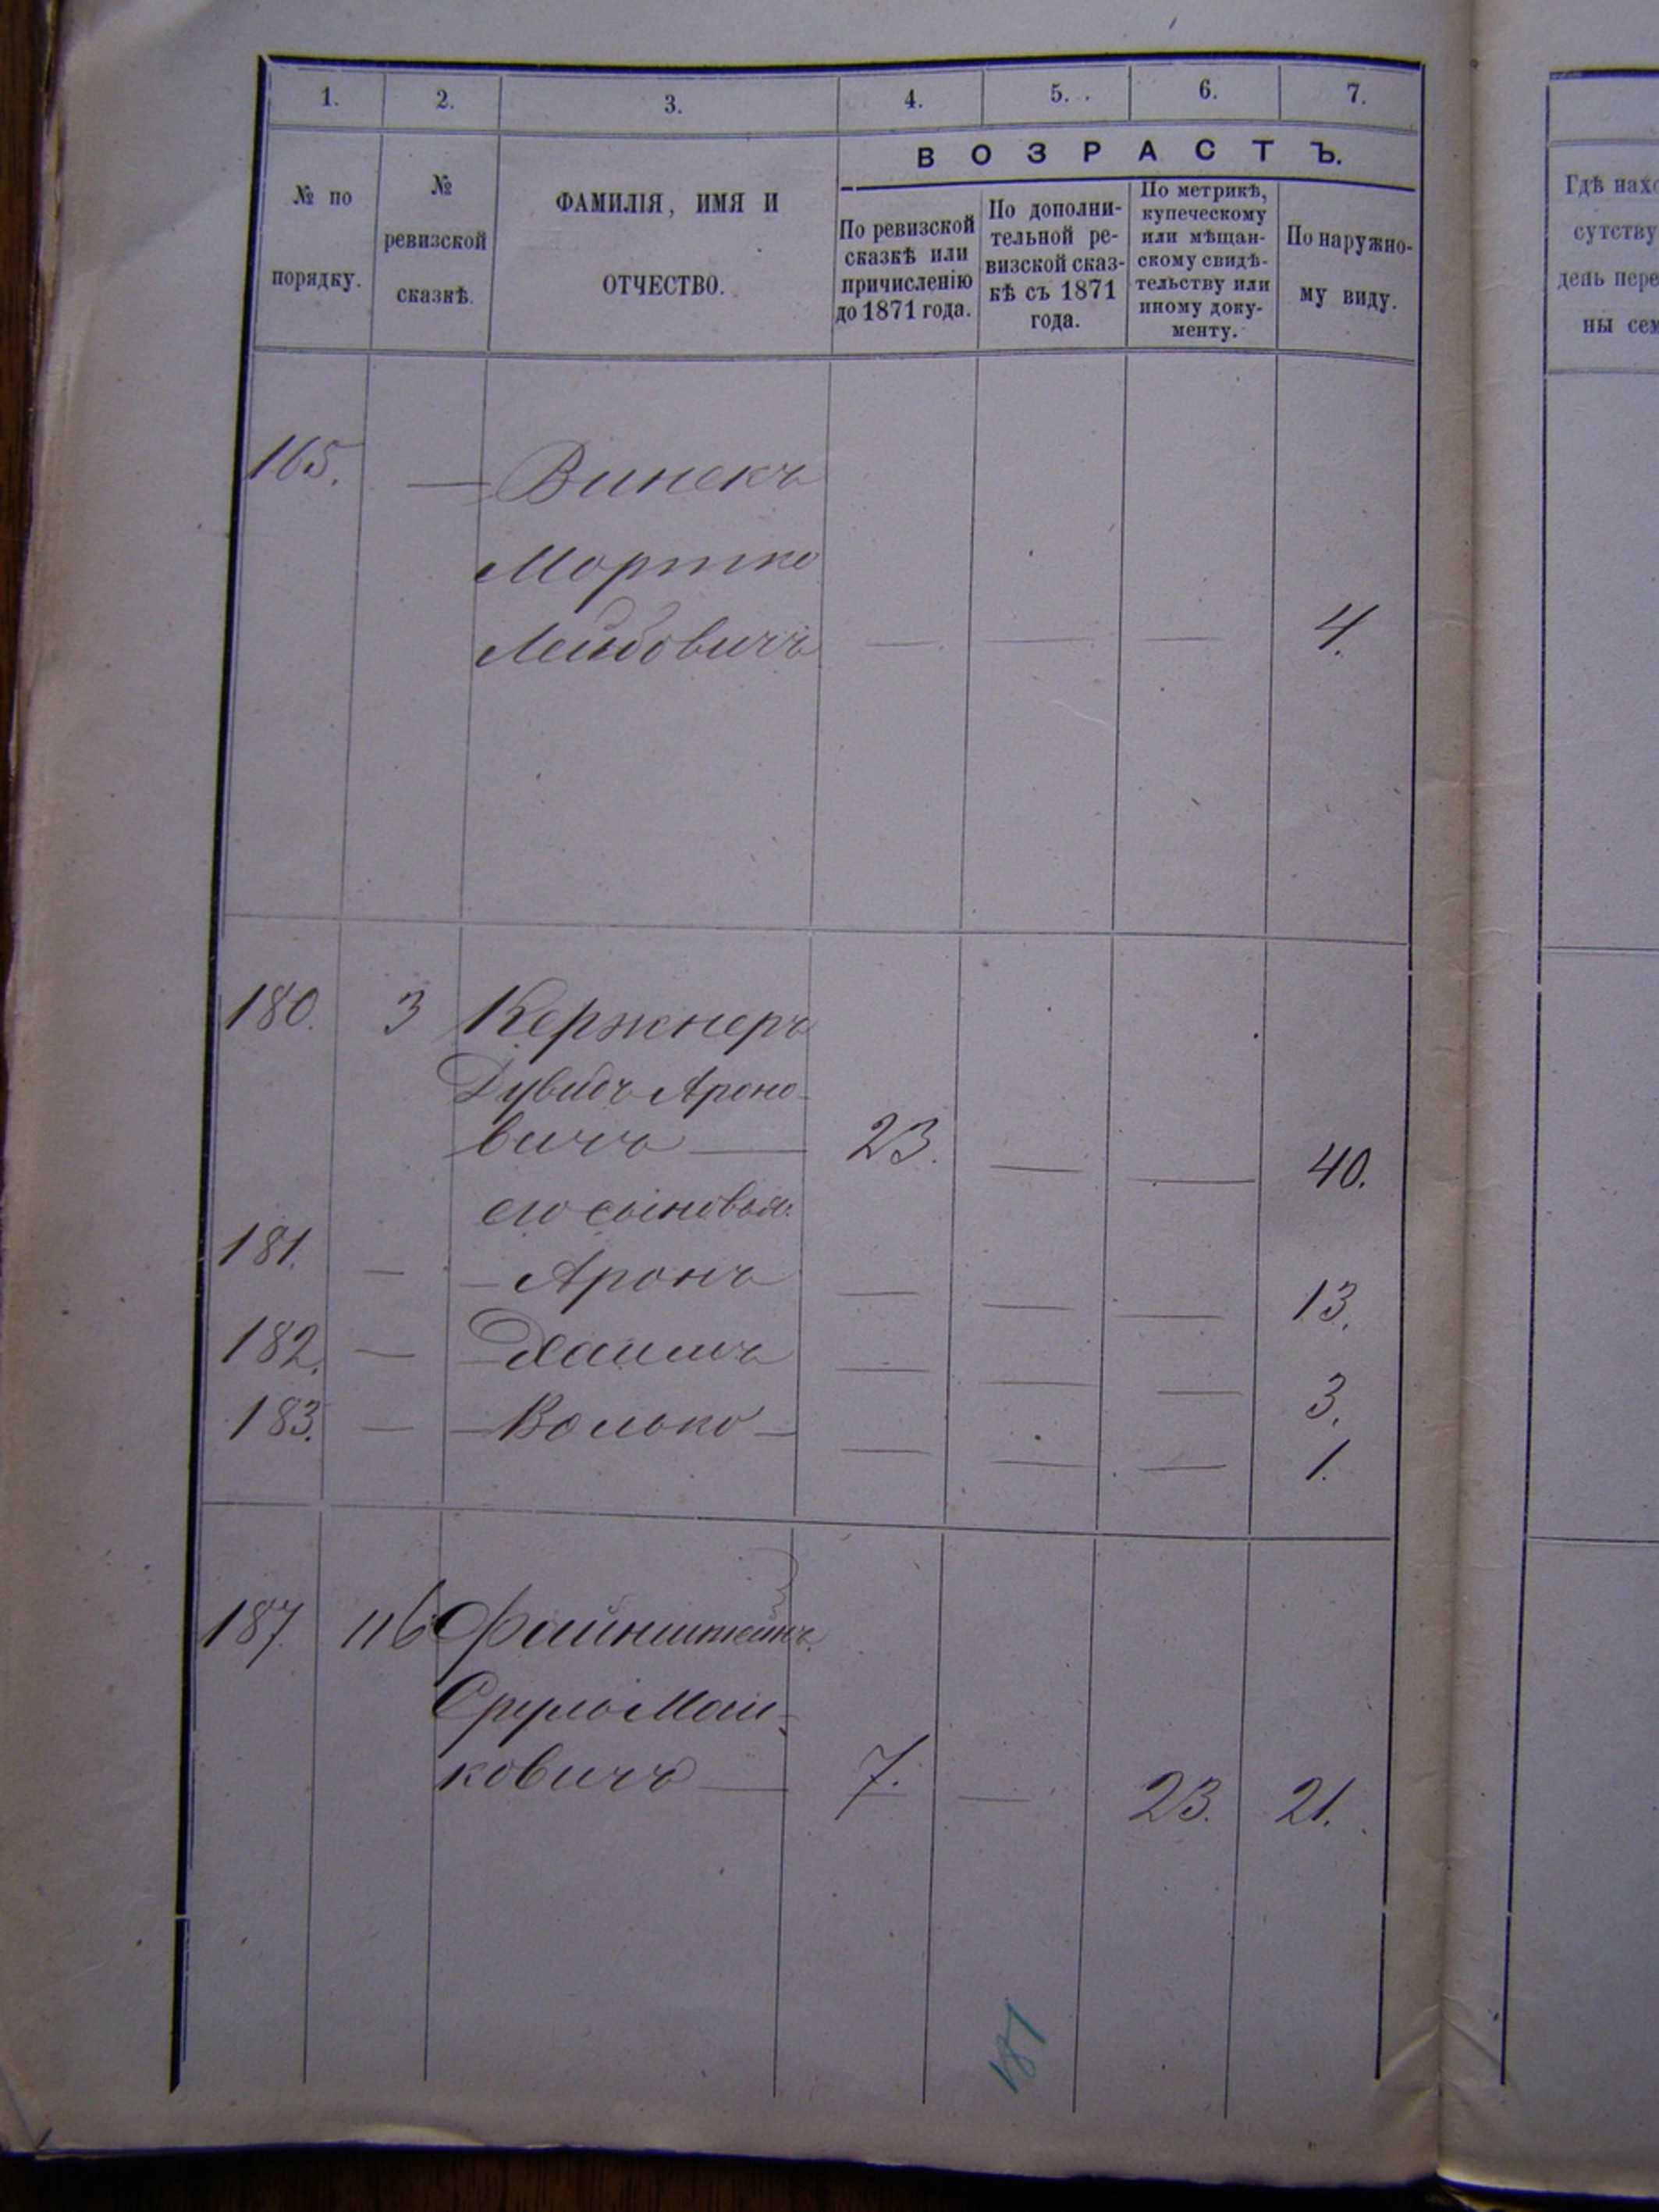 1. 2. 3. 4. 5. 6. 7.
ВОЗРАСТЪ.
№ по
порядку.
№
ревизской
сказкѣ.
ФАМИЛІЯ, ИМЯ И
ОТЧЕСТВО.
По ревизской
сказкѣ или
причисленію
до 1871 года.
По дополни-
тельной ре-
визской сказ-
кѣ съ 1871
года.
По метрикѣ,
купеческому
или мѣщан-
скому свидѣ-
тельству или
иному доку-
менту.
По наружно-
му виду.
165. — Винекъ
Мортко
Лейбовичъ — — — 4.
180. 3 Кержнеръ
Дувидъ Ароно-
вичъ — 23. — — 40.
его сыновья:
181. — — Аронъ — — — 13.
182. — — Хаимъ — — — 3.
183. — — Волько — — — — 1.
187. 116 Файнштейнъ
Сруль Мош-
ковичъ — 7. — 23. 21.
181
Гдѣ нахо
сутству
день пере
ны сем